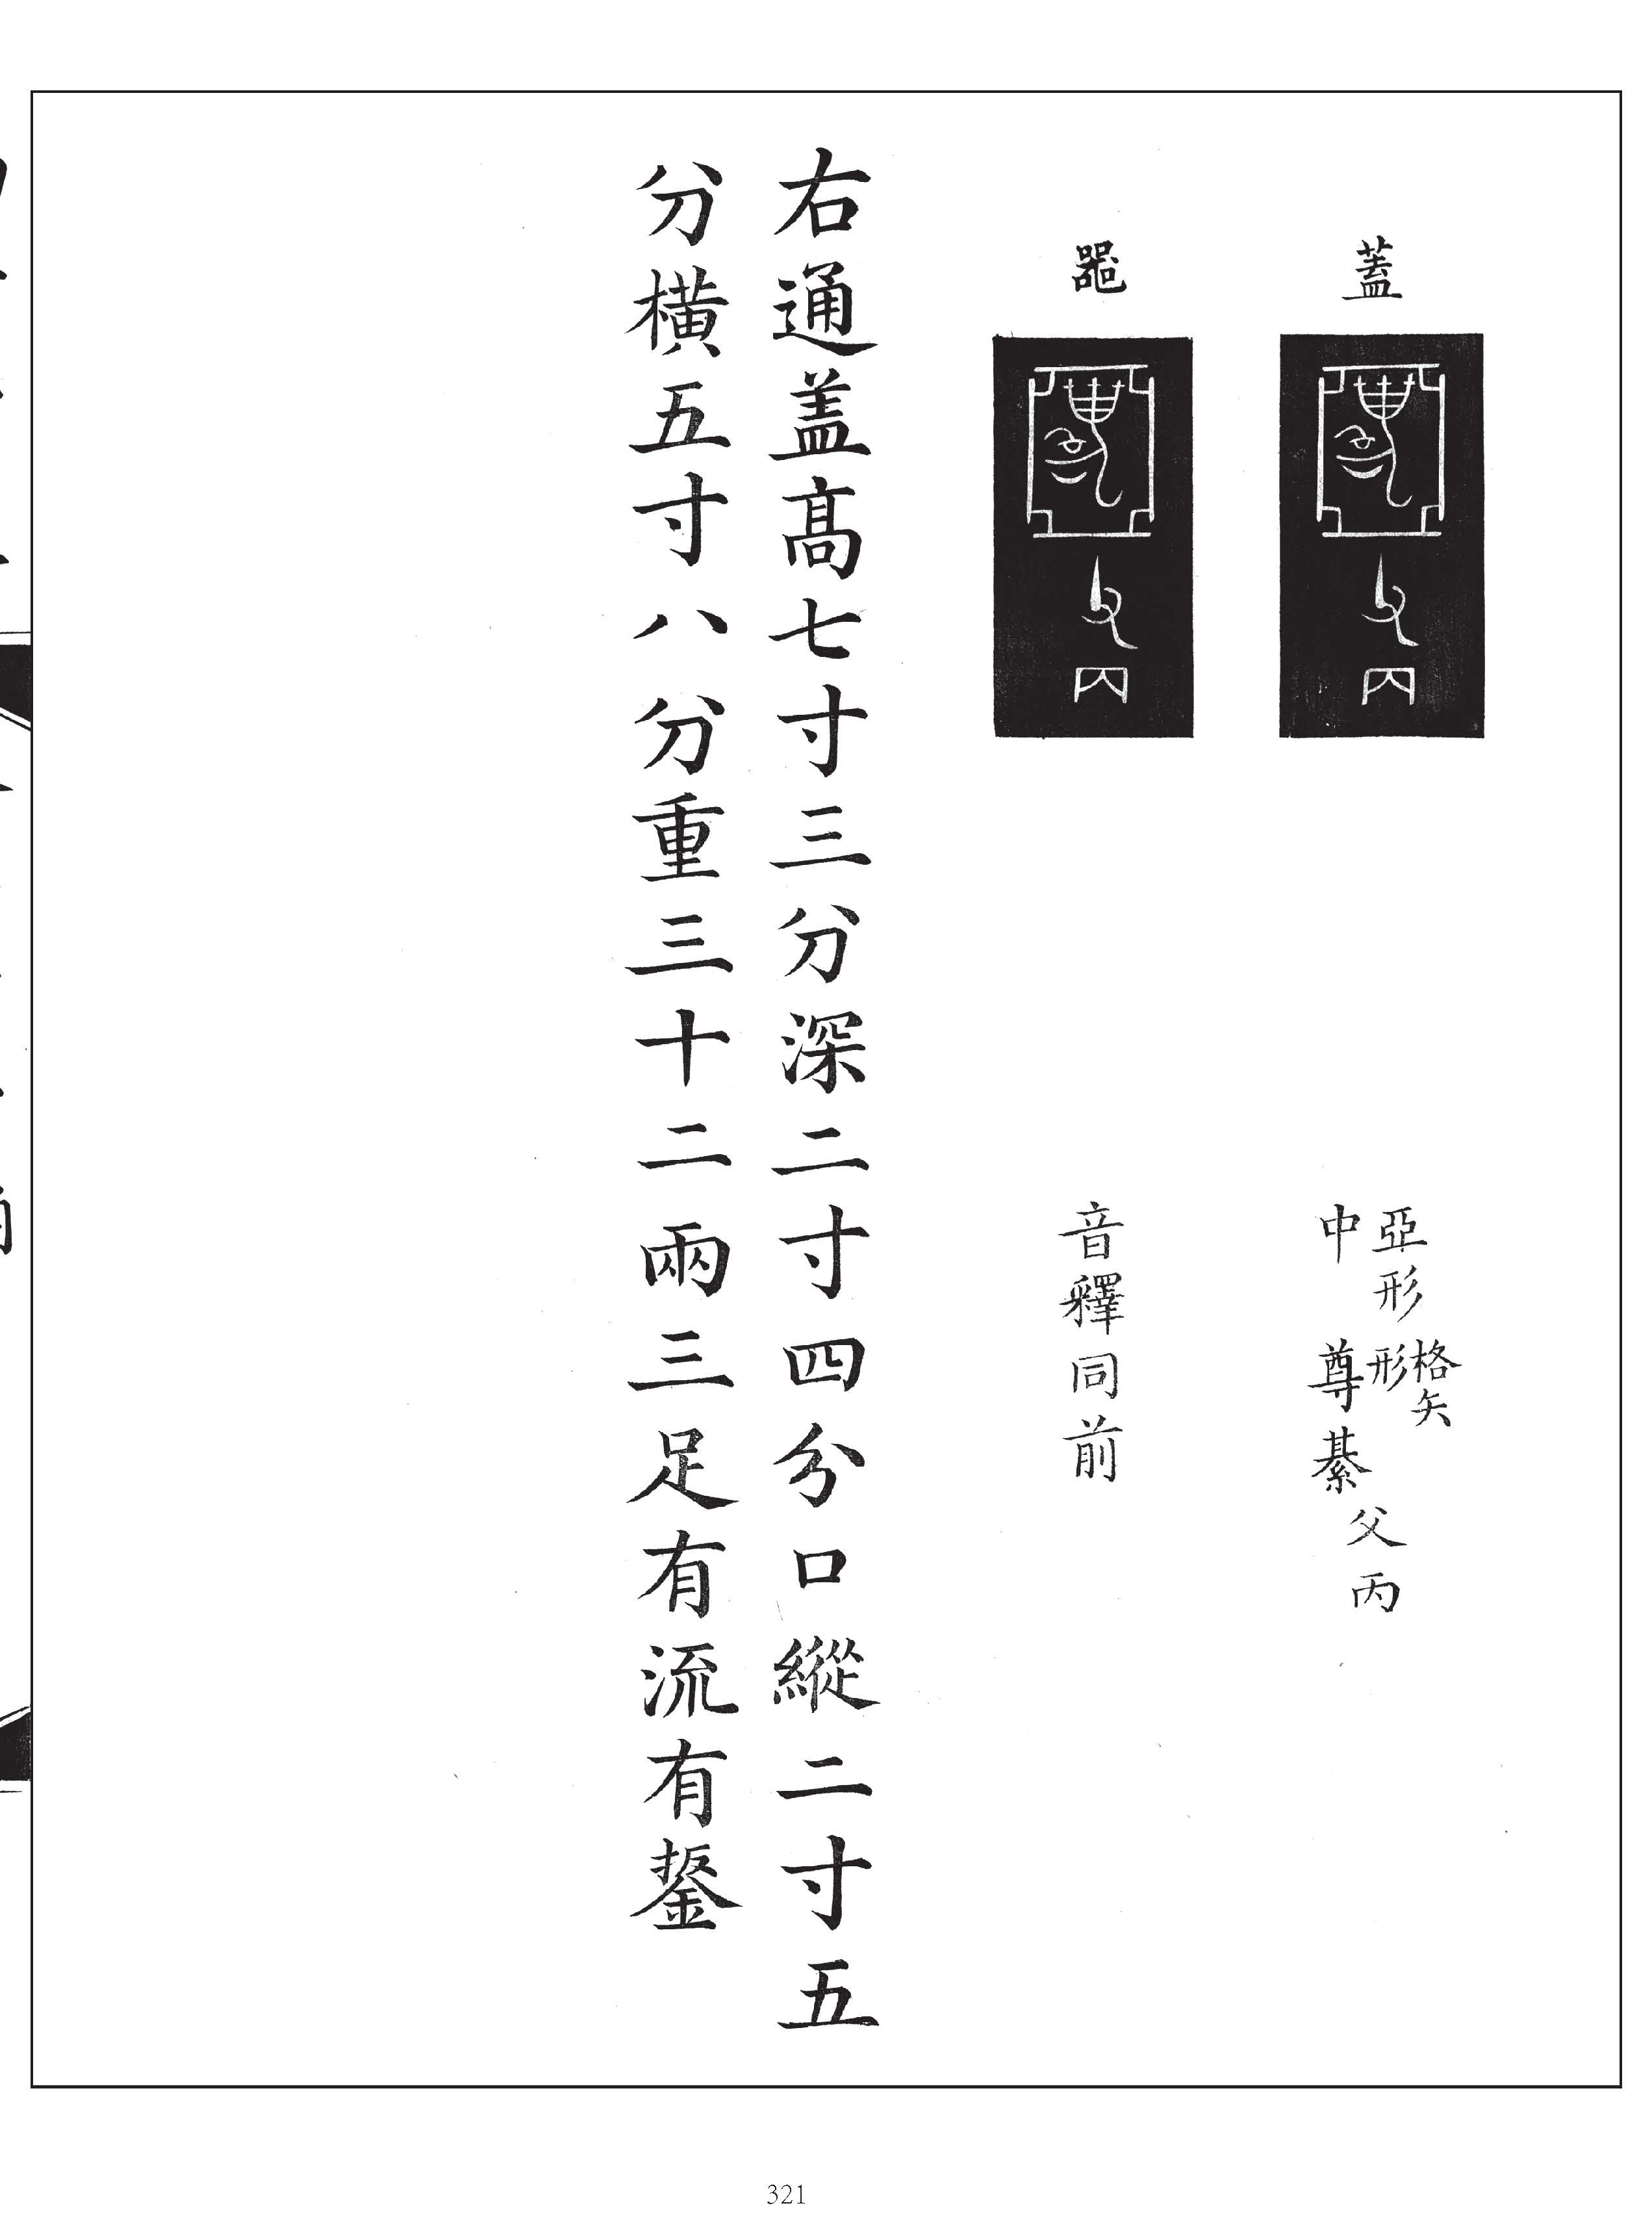 蓋
亞形
中
格矢
形
尊綦
父丙
器
音釋同前
右通盖髙七寸三分深二寸四分口縱二寸五
分橫五寸八分重三十二兩三足有流有鋬
321